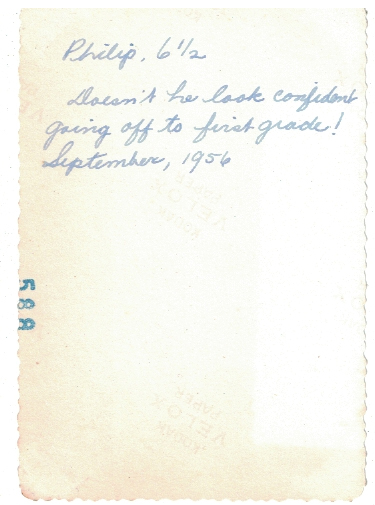 Philip, 6 1/2
Doesn't he look confident
going off to first grade!
September, 1956
588
KODAK
VELOX
PAPER
KODAK
VELOX
PAPER